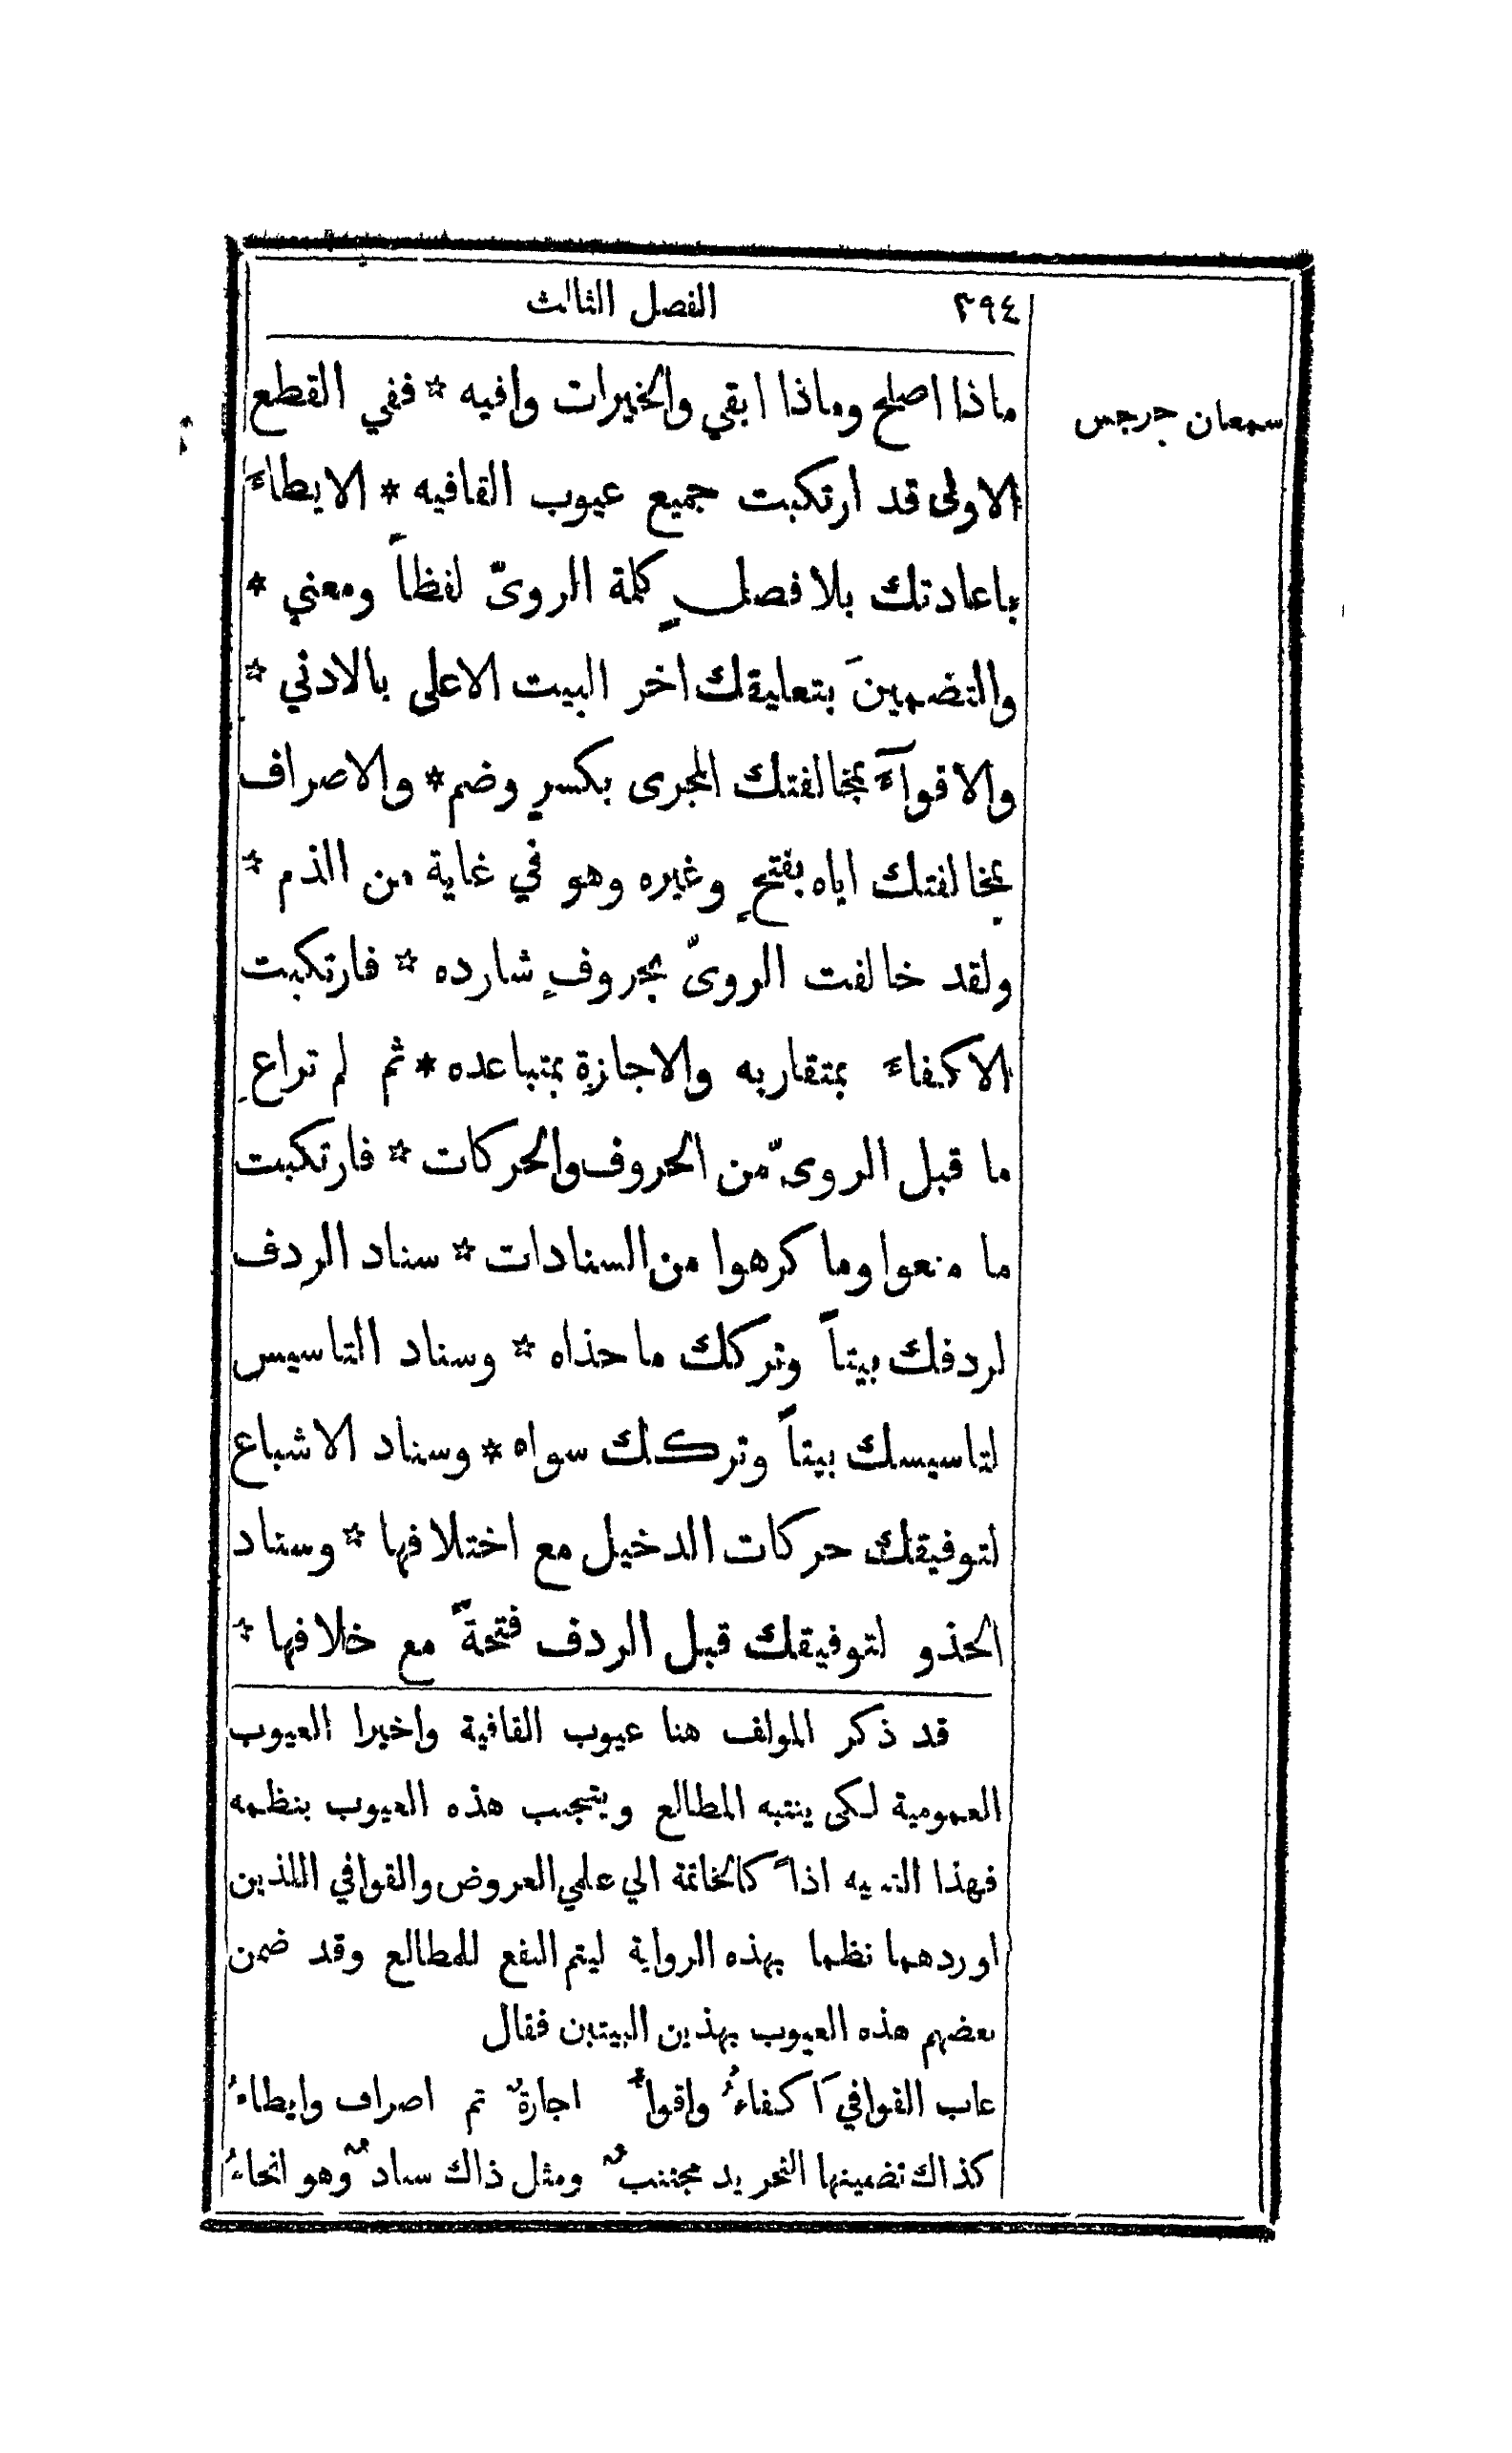 ٣٩٤
الفصل الثالث
سمعان جرجس
ماذا اصلح وماذا ابقي والخيرات وافيه * ففي القطع
الاولى قد ارتكبت جميع عيوب القافيه * الايطاءَ
باعادتك بلا فصلٍ كلمة الروىّ لفظاً ومعني *
والتضمينَ بتعليقك اخر البيت الاعلى بالادني *
والاقوآءَ بمخالفتك المجرى بكسرٍ وضم * والاصراف
بمخالفتك اياه بفتحٍ وغيره وهو في غاية من الذم *
ولقد خالفت الروىّ بحروفٍ شارده * فارتكبت
الاكفاءَ بمتقاربه والاجازة بمتباعده * ثم لم تراعِ
ما قبل الروىّ من الحروف والحركات * فارتكبت
ما منعوا وما كرهوا من السنادات * سناد الردف
لردفك بيتاً وتركك ما حذاه * وسناد التاسيس
لتاسيسك بيتاً وتركك سواه * وسناد الاشباع
لتوفيقك حركات الدخيل مع اختلافها * وسناد
الحذو لتوفيقك قبل الردف فتحةً مع خلافها *
قد ذكر المولف هنا عيوب القافية واخيرا العيوب
العمومية لكى ينتبه المطالع ويتجبب هذه العيوب بنظمه
فهذا التنبيه اذاً كالخاتمة الي علمي العروض والقوافي اللذين
اوردهما نظما بهذه الرواية ليتم النفع للمطالع وقد ضمن
بعضهم هذه العيوب بهذين البيتين فقال
عاب القوافي اكفاءٌ واقواٌ اجازةٌ ثم اصراف وايطاءُ
كذاك تضمينها التحريد مجتنبٌ ومثل ذاك سنادٌ وهو انحاءُ